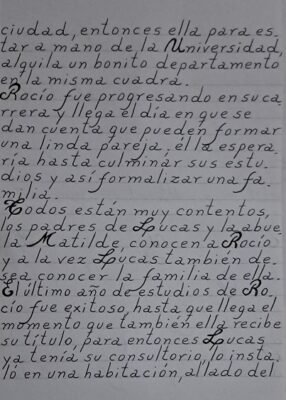 ciudad, entonces ella para es-
tar a mano de la Universidad,
alquila un bonito departamento
en la misma cuadra.
Rocío fue progresando en su ca-
rrera y llega el día en que se
dan cuenta que pueden formar
una linda pareja, él la espera-
ría hasta culminar sus estu-
dios y así formalizar una fa-
milia.
Todos están muy contentos,
los padres de Lucas y la abue-
la Matilde, conocen a Rocío
y a la vez Lucas también de-
sea conocer la familia de ella.
El último año de estudios de Ro-
cío fue exitoso, hasta que llega el
momento que también ella recibe
su título, para entonces Lucas
ya tenía su consultorio, lo insta-
ló en una habitación, al lado del